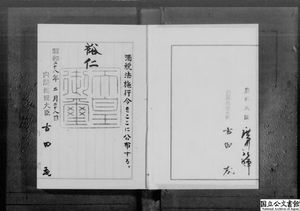 内閣総理大臣
吉田茂
酒税法施行令をここに公布する。
裕仁
天皇御璽
昭和二十八年二月二十八日
内閣総理大臣
吉田茂
国立公文書館
National Archives of Japan